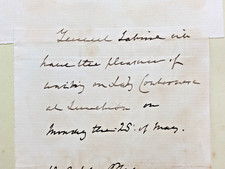 General Sabine will
have the pleasure of
waiting on Lady
at Luncheon on
Monday the 25th of May.